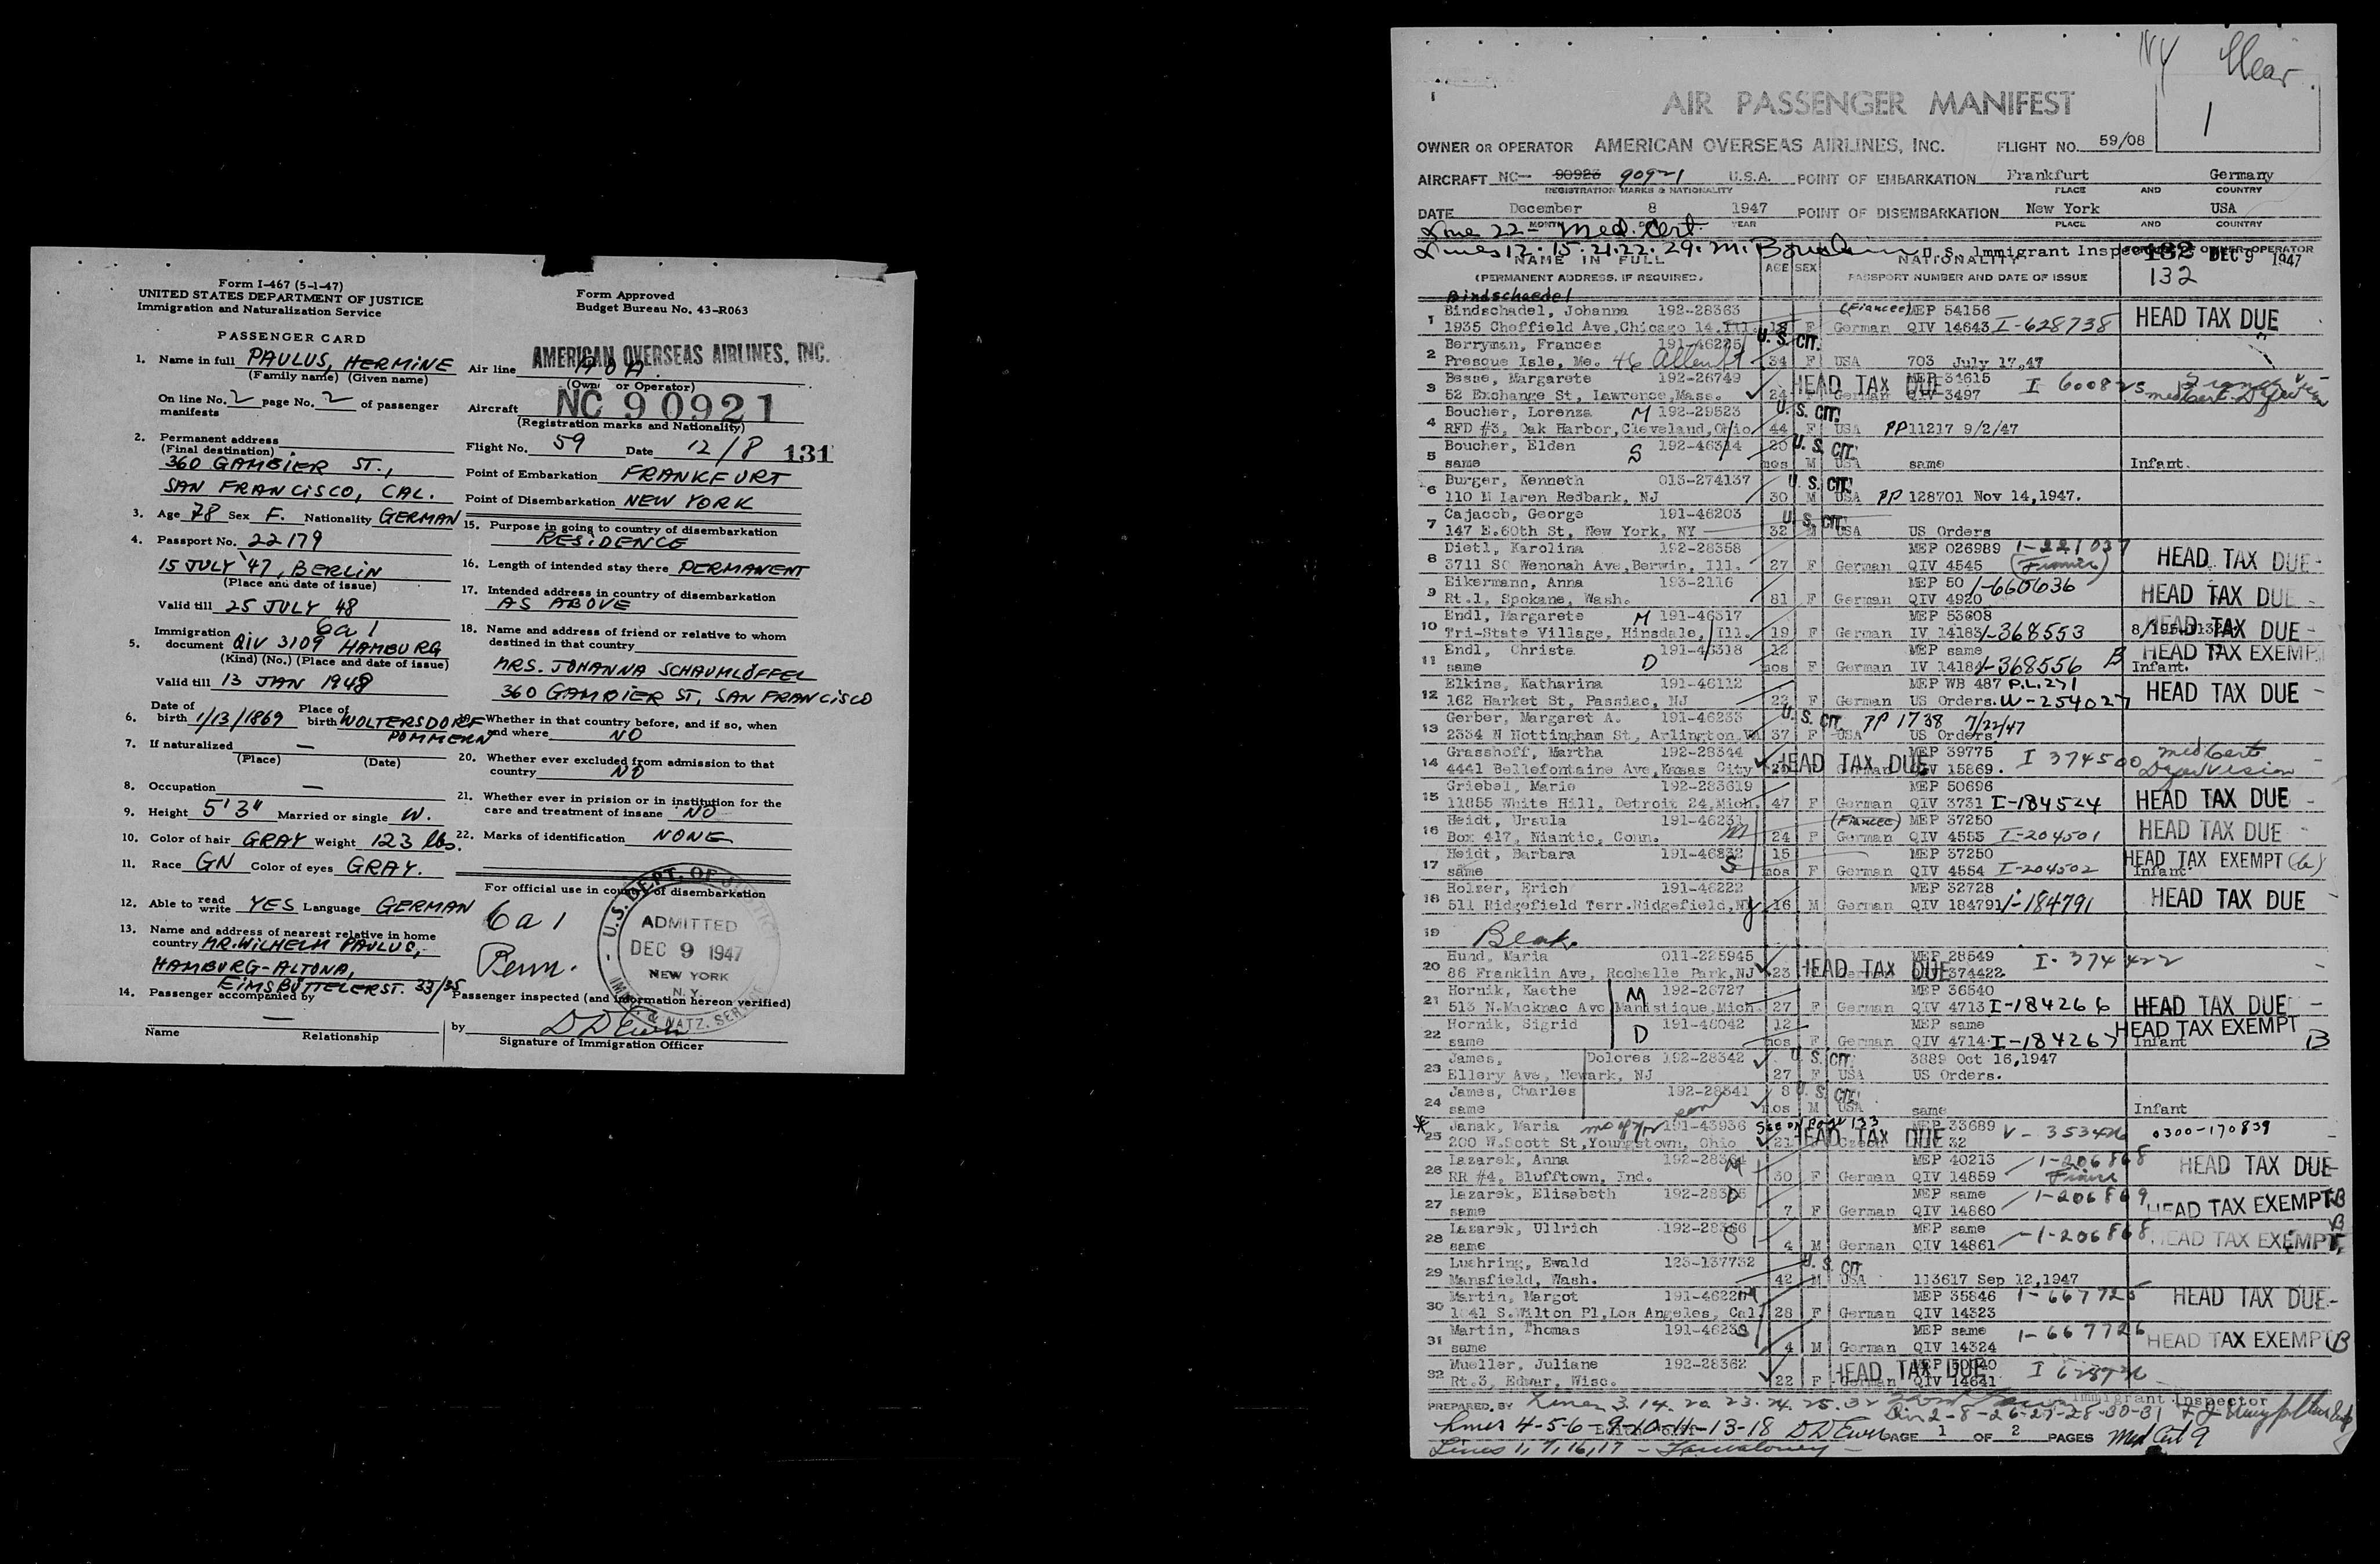 Form I-467 (5-1-47)
UNITED STATES DEPARTMENT OF JUSTICE
Immigration and Naturalization Service
Form Approved
Budget Bureau No. 43-R063
PASSENGER CARD
1. Name in full PAULUS, HERMINE
(Family name) (Given name)
On line No. 2 page No. 2 of passenger
manifests
2. Permanent address
(Final destination)
360 GAMBIER ST.,
SAN FRANCISCO, CAL.
3. Age 78 Sex F. Nationality GERMAN
4. Passport No. 22179
15 JULY '47, BERLIN
(Place and date of issue)
Valid till 25 JULY 48
6a1
5. Immigration document QIV 3109 HAMBURG
(Kind) (No.) (Place and date of issue)
Valid till 13 JAN 1948
6. Date of birth 1/13/1869 Place of birth WOLTERSDORF
POMMERN
7. If naturalized —
(Place) (Date)
8. Occupation —
9. Height 5'3" Married or single W.
10. Color of hair GRAY Weight 123 lbs.
11. Race GN Color of eyes GRAY.
12. Able to read write YES Language GERMAN
13. Name and address of nearest relative in home
country MR. WILHELM PAULUS,
HAMBURG-ALTONA,
EIMSBÜTTELERST. 33/35
14. Passenger accompanied by
—
Name Relationship
Air line AMERICAN OVERSEAS AIRLINES, INC.
AOA
(Own or Operator)
Aircraft NC 90921
(Registration marks and Nationality)
Flight No. 59 Date 12/8 131
Point of Embarkation FRANKFURT
Point of Disembarkation NEW YORK
15. Purpose in going to country of disembarkation
RESIDENCE
16. Length of intended stay there PERMANENT
17. Intended address in country of disembarkation
AS ABOVE
18. Name and address of friend or relative to whom
destined in that country
MRS. JOHANNA SCHAUMLÖFFEL
360 GAMBIER ST, SAN FRANCISCO
19. Whether in that country before, and if so, when
and where NO
20. Whether ever excluded from admission to that
country NO
21. Whether ever in prision or in institution for the
care and treatment of insane NO
22. Marks of identification NONE
For official use in country of disembarkation
6a1
Perm.
U.S. DEPT. OF JUSTICE
ADMITTED
DEC 9 1947
NEW YORK
N.Y.
IMM. & NATZ. SERVICE
Passenger inspected (and information hereon verified)
by DDEwen
Signature of Immigration Officer
NY
1
AIR PASSENGER MANIFEST
OWNER OR OPERATOR AMERICAN OVERSEAS AIRLINES, INC. FLIGHT NO. 59/08
AIRCRAFT NC- 90923 90921 U.S.A. POINT OF EMBARKATION Frankfurt Germany
REGISTRATION MARKS & NATIONALITY PLACE AND COUNTRY
DATE December 8 1947 POINT OF DISEMBARKATION New York USA
MONTH YEAR PLACE AND COUNTRY
Line 22 - Med. Cert.
Lines 12. 15. 21. 22. 29. M. U.S. Immigrant Inspector
DEC 9 1947
NAME IN FULL AGE SEX NATIONALITY 132
(PERMANENT ADDRESS, IF REQUIRED) PASSPORT NUMBER AND DATE OF ISSUE 132
Bindschaedel
1 Bindschadel, Johanna 192-28363 (Fiancee) MEP 54156
1935 Cheffield Ave, Chicago 14, Ill. 18 F German QIV 14643 I-628738 HEAD TAX DUE
2 Berryman, Frances 191-46225 U.S. CIT.
Presque Isle, Me. 46 Allen St 34 F USA 703 July 17,47
3 Besse, Margarete 192-26749 HEAD TAX DUE MEP 34615
52 Exchange St, Lawrence, Mass. 24 F German QIV 3497
4 Boucher, Lorenza M 192-29523 U.S. CIT.
RFD #3, Oak Harbor, Cleveland, Ohio 44 F USA PP 11217 9/2/47
5 Boucher, Elden S 192-46314 20 U.S. CIT.
same mos M USA same Infant.
6 Burger, Kenneth 013-274137 U.S. CIT.
110 N Laren Redbank, NJ 30 M USA PP 128701 Nov 14,1947.
7 Cajacob, George 191-46203 U.S. CIT.
147 E.60th St, New York, NY 32 M USA US Orders
8 Dietl, Karolina 192-28358 MEP 026989 1-221037
3711 SO Wenonah Ave, Berwin, Ill. 27 F German QIV 4545 HEAD TAX DUE
9 Eikermann, Anna 193-2116 MEP 50 1-660636
Rt.1, Spokane, Wash. 81 F German QIV 4920 HEAD TAX DUE
10 Endl, Margarete M 191-46317 MEP 53608
Tri-State Village, Hinsdale, Ill. 19 F German IV 14183 1-368553 HEAD TAX DUE
11 Endl, Christe D 191-46318 12 MEP same HEAD TAX EXEMPT
same mos F German IV 14184 1-368556 B Infant.
12 Elkins, Katharina 191-46112 MEP WB 487 P.L.271
162 Harket St, Passiac, NJ 22 F German US Orders. W-254027 HEAD TAX DUE
13 Gerber, Margaret A. 191-46233 U.S. CIT. PP 1738 7/22/47
2334 N Nottingham St, Arlington, Va 37 F USA US Orders
14 Grasshoff, Martha 192-28344 HEAD TAX DUE MEP 39775
4441 Bellefontaine Ave, Knsas City German QIV 15869. I 374500
15 Griebel, Marie 192-283619 MEP 50696
11855 White Hill, Detroit 24, Mich. 47 F German QIV 3731 I-184524 HEAD TAX DUE
16 Heidt, Ursula 191-46231 (Fiancee) MEP 37250
Box 417, Niantic, Conn. M 24 F German QIV 4553 I-204501 HEAD TAX DUE
17 Heidt, Barbara 191-46832 15 MEP 37250 HEAD TAX EXEMPT
same S mos F German QIV 4554 I-204502 Infant
18 Holzer, Erich 191-46222 MEP 32728
511 Ridgefield Terr. Ridgefield, NJ 16 M German QIV 184791 1-184791 HEAD TAX DUE
19 Blank
20 Hund, Maria 011-225945 MEP 28549
86 Franklin Ave, Rochelle Park, NJ 23 HEAD TAX DUE 374422 I-374422
21 Hornik, Kaethe M 192-26727 MEP 36640
513 N.Macknac Ave Manistique, Mich. 27 F German QIV 4713 I-184266 HEAD TAX DUE
22 Hornik, Sigrid D 191-46042 12 MEP same HEAD TAX EXEMPT
same mos F German QIV 4714 I-184267 Infant B
23 James, Dolores 192-28342 U.S. CIT. 3889 Oct 16,1947
Ellery Ave, Newark, NJ 27 F USA US Orders.
24 James, Charles 192-28341 8 U.S. CIT.
same mos M USA same Infant
* 25 Janak, Maria 191-43936 See on page 133 MEP 33689
200 W.Scott St, Youngstown, Ohio 21 HEAD TAX DUE Czech 32 V-353426 0300-170839
26 Lazarek, Anna M 192-28364 MEP 40213 1-206868
RR #4, Blufftown, Ind. 30 F German QIV 14859 HEAD TAX DUE
27 Lazarek, Elisabeth D MEP same 1-206869
same 7 F German QIV 14860 HEAD TAX EXEMPT B
28 Lazarek, Ullrich 192-28366 MEP same 1-206868 B
same 4 M German QIV 14861 HEAD TAX EXEMPT
29 Luehring, Ewald 123-137732 U.S. CIT
Mansfield, Wash. 42 M USA 113617 Sep 12,1947
30 Martin, Margot MEP 35846 1-667725 HEAD TAX DUE
1041 S.Wilton Pl, Los Angeles, Cal. 28 F German QIV 14323
31 Martin, Thomas MEP same 1-667726 HEAD TAX EXEMPT B
same 4 M German QIV 14324
32 Mueller, Juliane 192-28362 HEAD TAX DUE MEP 50040
Rt.3, Edwar, Wisc. 22 F German QIV 14641
PREPARED BY Lines 3. 14. 20 23. 24. 25. 32 Immigrant Inspector
Lin 2-8-26-27-28-30-31
Lines 4-5-6-9-10-11-13-18 DDEwen PAGE 1 OF 2 PAGES Med Cert 9
Lines 1, 7, 16, 17